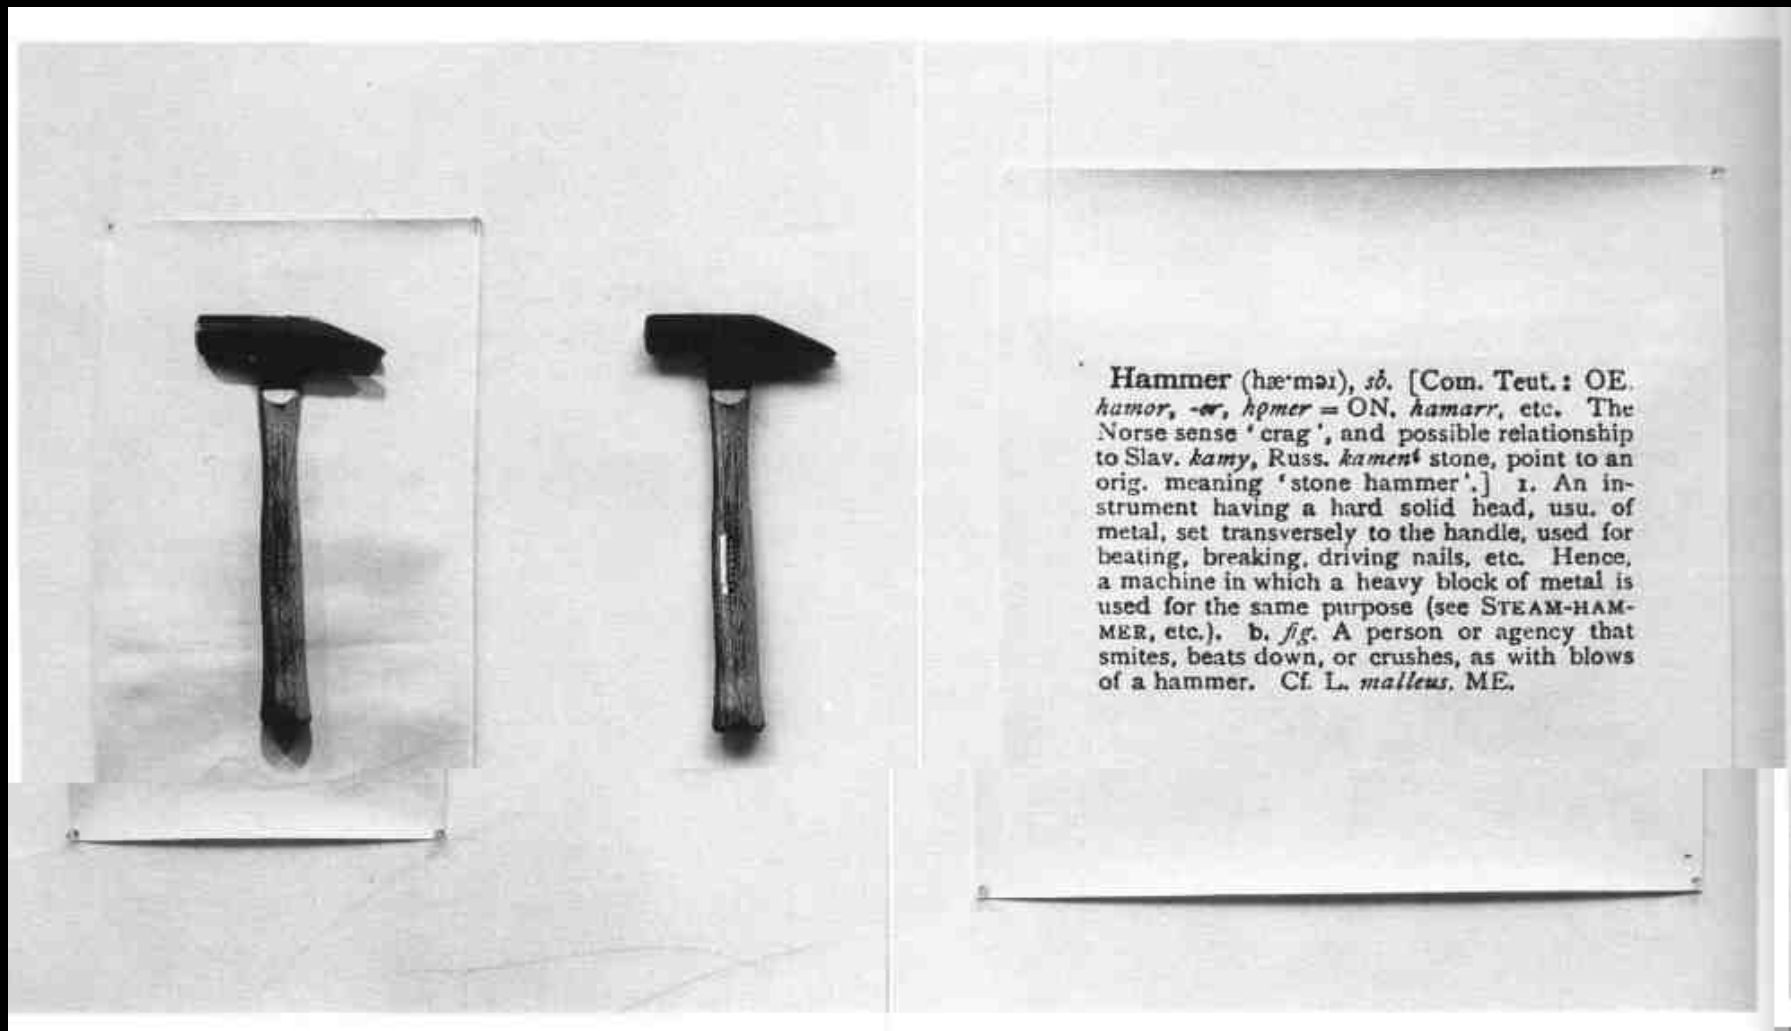 Hammer (hæ·məɹ), sb. [Com. Teut.: OE.
hamor, -er, hǫmer = ON. hamarr, etc. The
Norse sense ‘crag’, and possible relationship
to Slav. kamy, Russ. kamenĭ stone, point to an
orig. meaning ‘stone hammer’.] 1. An in-
strument having a hard solid head, usu. of
metal, set transversely to the handle, used for
beating, breaking, driving nails, etc. Hence,
a machine in which a heavy block of metal is
used for the same purpose (see STEAM-HAM-
MER, etc.). b. fig. A person or agency that
smites, beats down, or crushes, as with blows
of a hammer. Cf. L. malleus. ME.